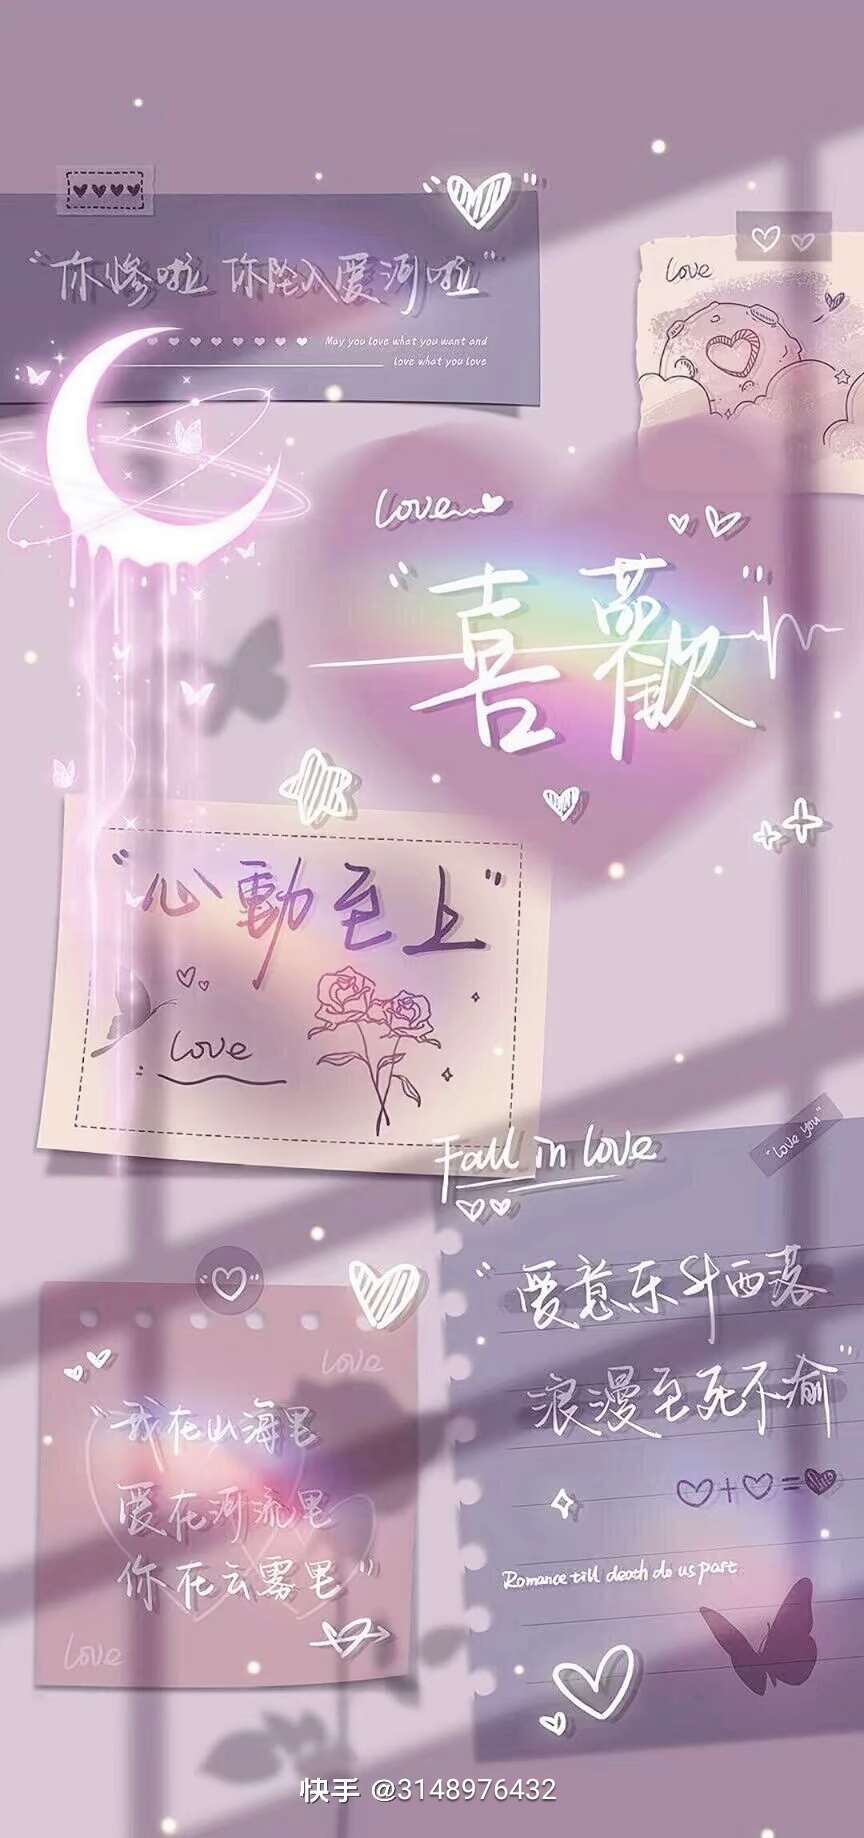 "你惨啦 你坠入爱河啦"
May you love what you want and
love what you love
Love
Love
"喜歡"
"心動至上"
Love
Fall in love
"Love you"
"爱意东升西落
浪漫至死不渝"
Romance till death do us part
Love
"我在山海里
爱在河流里
你在云雾里"
Love
快手 @3148976432